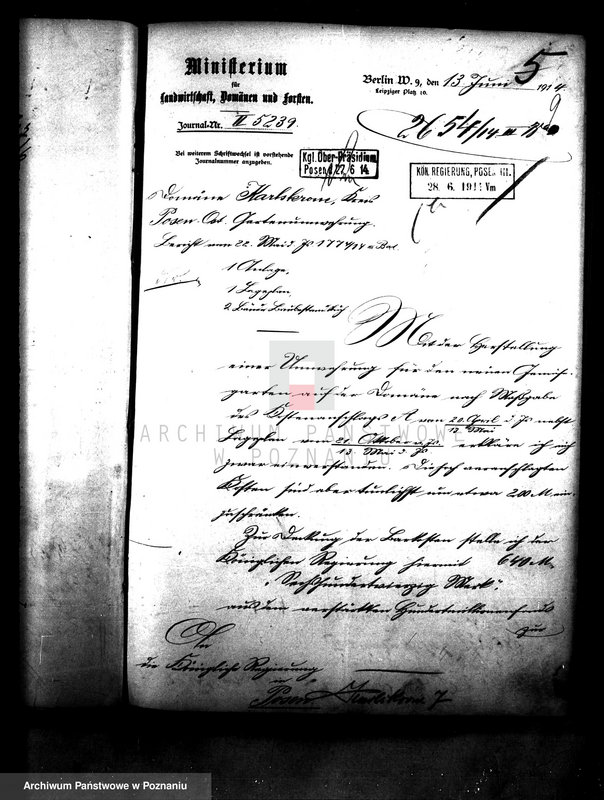 5
Ministerium
für
Landwirtschaft, Domänen und Forsten.
Journal-Nr. II 5239.
Bei weiterem Schriftwechsel ist vorstehende
Journalnummer anzugeben.
Berlin W. 9, den 13 Juni 1914.
Leipziger Platz 10.
2654/14 III
Kgl. Ober-Präsidium
Posen 27 6 14
KÖN. REGIERUNG, POSEN III.
28. 6. 1914 Vm
Domäne Karlskrone, Kreis
Posen Ost. Gartenumwehrung.
Bericht vom 22. Mai d Js 1774/14
1 Anlage,
1 Lageplan,
2 Bände
Mit der Herstellung
einer Umwehrung für den neuen Gemüse-
garten auf der Domäne nach Maßgabe
des Kostenanschlags vom 20. April / 12. Mai d. Js nebst
Lageplan vom 21 Oktober v. Js / 13 Mai d. Js erkläre ich mich
zwar einverstanden. Die veranschlagten
Kosten sind aber tunlichst um etwa 200 M. ein-
zuschränken.
Zur Deckung der Baukosten stelle ich der
Königlichen Regierung hiermit 640 M.
"Sechshundertvierzig Mark",
aus dem verstärkten
zur
An
die Königliche Regierung
in
Posen
ARCHIWUM PAŃSTWOWE
W POZNANIU
Archiwum Państwowe w Poznaniu